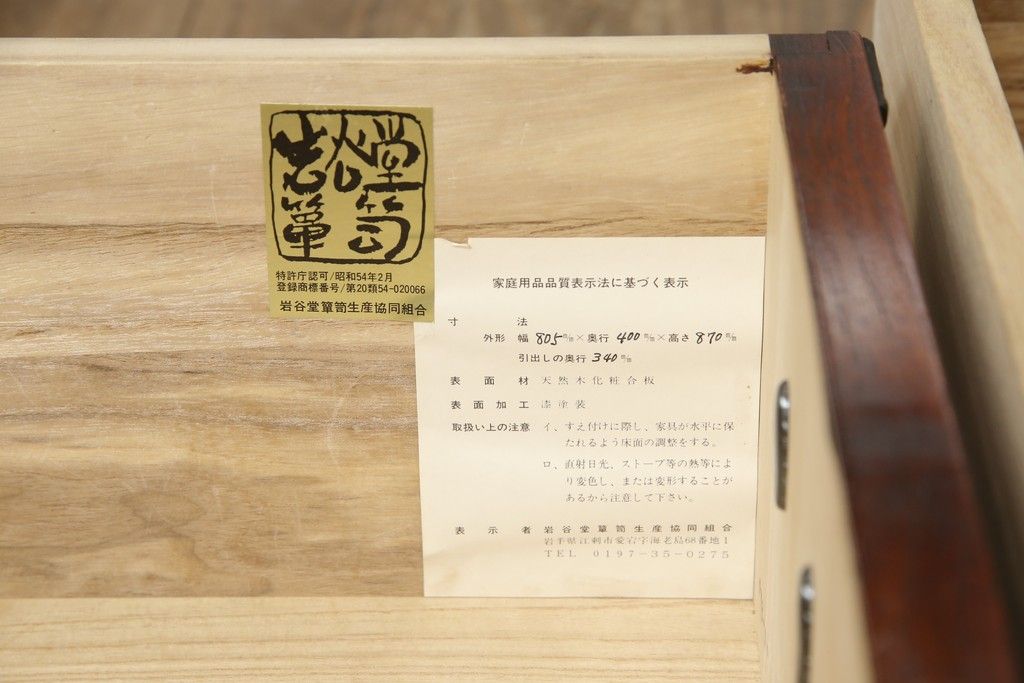 岩谷堂
箪笥
特許庁認可/昭和54年2月
登録商標番号/第20類54-020066
岩谷堂箪笥生産協同組合
家庭用品品質表示法に基づく表示
寸法
外形 幅 805m/m×奥行 400m/m×高さ 870m/m
引出しの奥行 340m/m
表面材 天然木化粧合板
表面加工 漆塗装
取扱い上の注意 イ、すえ付けに際し、家具が水平に保
たれるよう床面の調整をする。
ロ、直射日光、ストーブ等の熱等によ
り変色し、または変形することが
あるから注意して下さい。
表示者 岩谷堂箪笥生産協同組合
岩手県江刺市愛宕字海老島68番地1
TEL 0197-35-0275